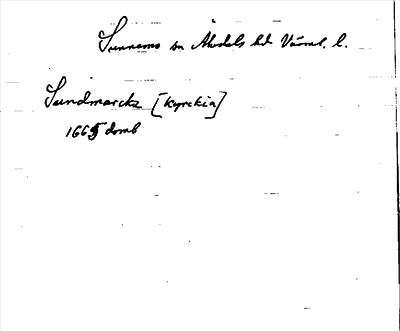 Sunnemo sn Älvdals hd Värml. l.
Sundmarckz [kyrckia]
1665 domb